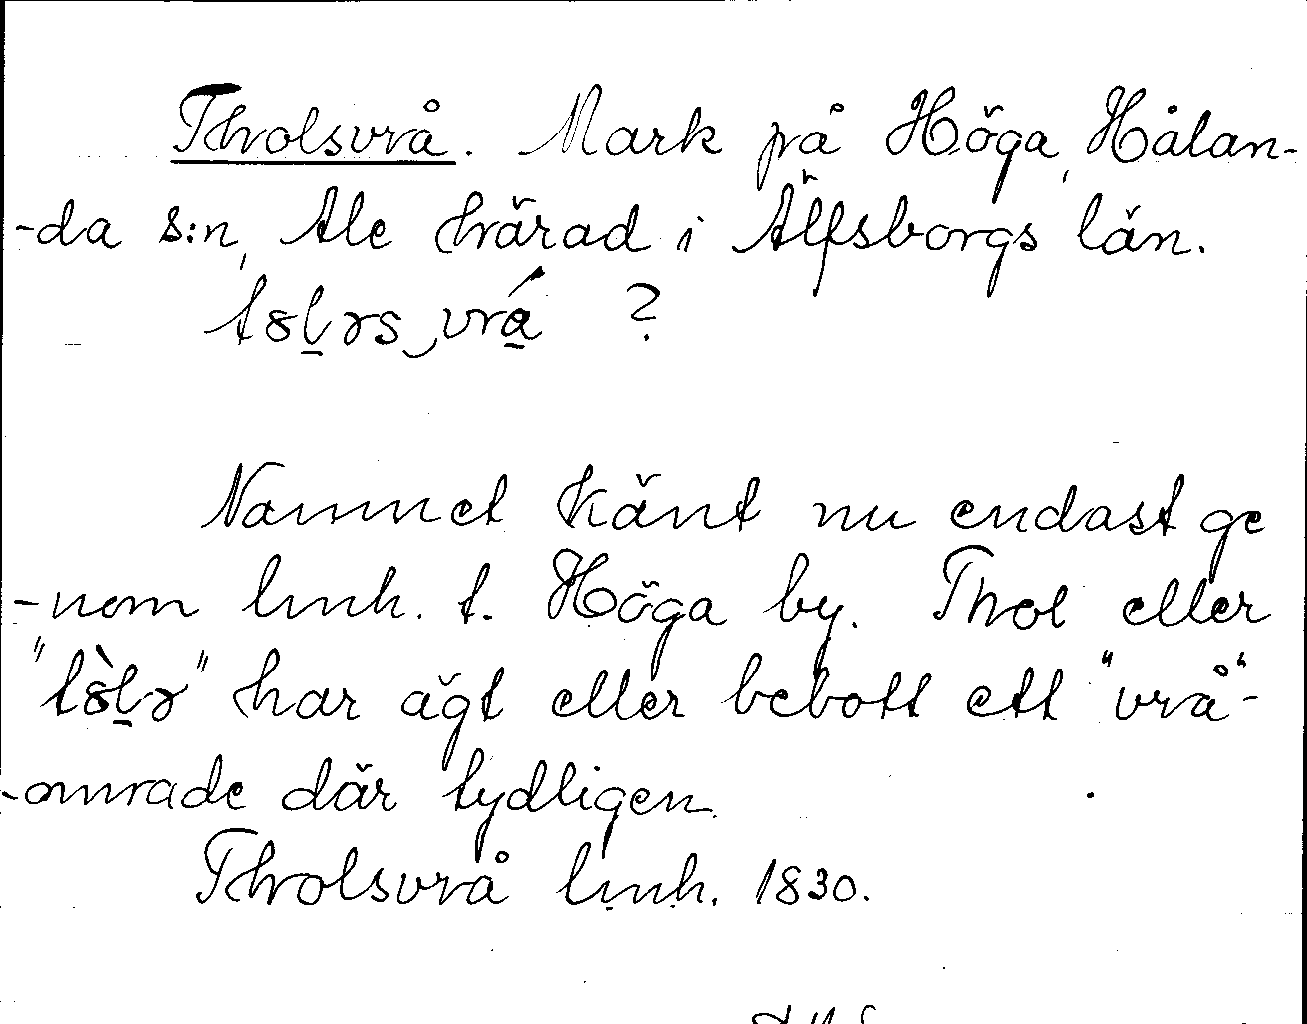 Tholsvrå. Mark på Höga, Hålan-
-da s:n, Ale härad i Älfsborgs län.
tɔl̠əs‿vrá̠ ?
Namnet känt nu endast ge
-nom lmh. t. Höga by. Thol eller
"tɔ̀l̠ə" har ägt eller bebott ett "vrå"-
-område där tydligen.
Tholsvrå lmh. 1830.